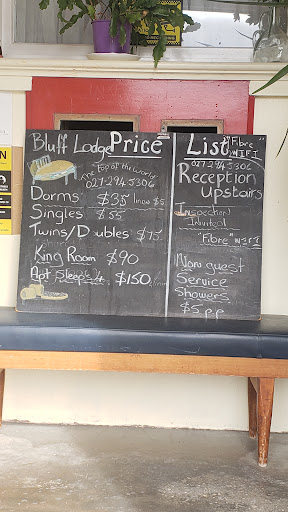 Bluff Lodge Price List
"Fibre"
WIFI
The Top of the World
027-294 5306
Dorms $35 linen $5
Singles $55
Twins/Doubles $75
King Room $90
Apt Sleeps 4 $150
027-294 5306
Reception
Upstairs
Inspection
Invited
"Fibre" WIFI
Non guest
Service
Showers
$5 p.p